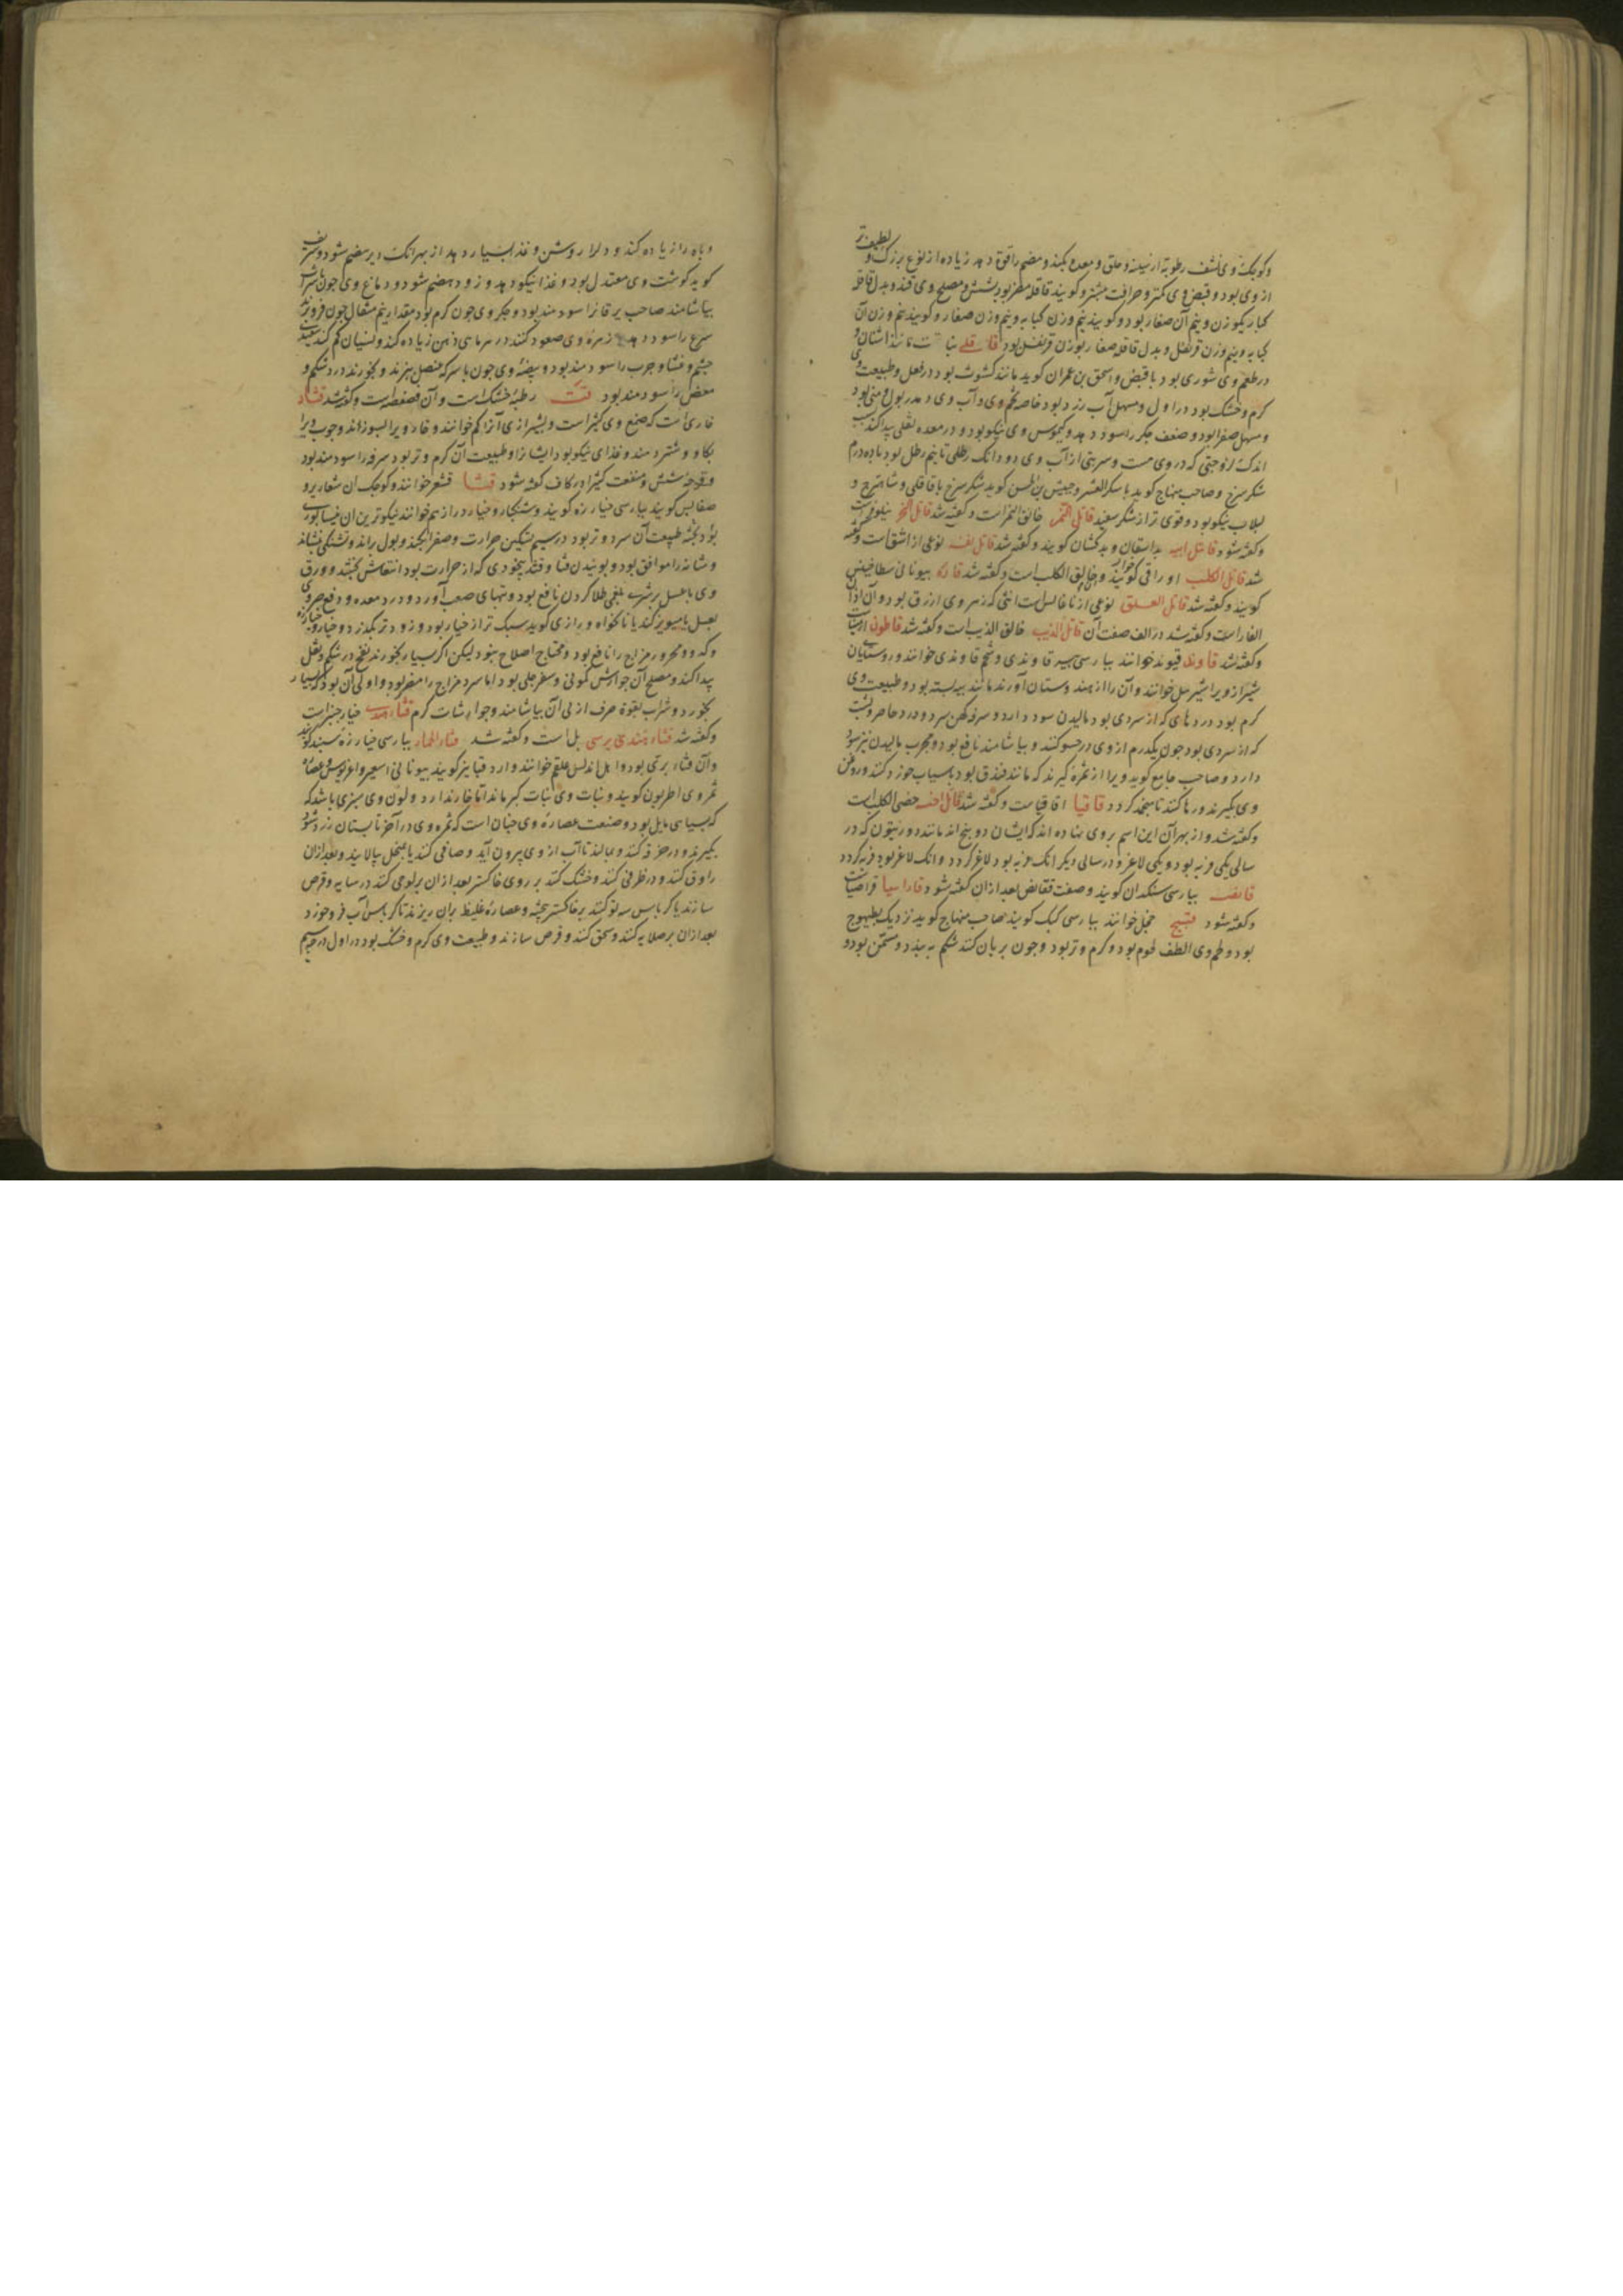 لطیف‌تر
وکوچک وی نشف رطوبة از سینه و حلق و معده بکند و هضم را قوة دهد زیاده از نوع بزرک و
از وی بود و قبض وی کمتر و حرافت بیشتر و کویند قاقله مضر بود بشش و مصلح وی قند و بدل قاقله
کبار یکوزن و نیم آن صغار بود و کویند نیم وزن کبابه و نیم وزن صغار و کویند نیم وزن آن
کبابه و نیم وزن قرنفل و بدل قاقله صغار بوزن قرنفل بود قاقلی نباتست مانند اشنان و
در طعم وی شوری بود با قبض و اسحق بن عمران کوید مانند کشوث بود در فعل و طبیعت وی
کرم و خشک بود در اول و مسهل آب زرد بود خاصه تخم وی و آب وی و مدر بول و منی بود
و مسهل صفرا بود و ضعف جکر را سود دهد و کیموس وی نیکو بود و در معده ثقلی پیدا کند بسبب
اندک لزوجتی که در وی هست و شربتی از آب وی دو دانک رطلی تا نیم رطل بود با ده درم
شکر سرخ و صاحب منهاج کوید با سکر العشر و حبیش بن الحسن کوید شکر سرخ با قاقلی و شاهترج و
لبلاب نیکو بود و قوی تر از شکر سفید قاتل النمر خانق النمر است و کفته شد قاتل النحل نیلوفر است
و کفته شود قاتل ابیه بداسقان و بدکشان کویند و کفته شد قاتل نفسه نوعی از اشق است و کفته
شد قاتل الکلب اوراقی کویند و خانق الکلب است و کفته شد قاره بیونانی سطاخینس
کویند و کفته شد قاتل العلق نوعی از اناغالس است انثی که زهر وی ازرق بود و آن اذان
الفار است و کفته شد در الف صفت آن قاتل الذیب خانق الذیب است و کفته شد قاطون
و کفته شد قاوند قیوند خوانند بپارسی پیه قاوندی و شحم قاوندی خوانند و روستایان
شیراز ویرا شیرمل خوانند و آن را از هندوستان آورند مانند پیه بسته بود و طبیعت وی
کرم بود دردهای که از سردی بود مالیدن سود دارد و سرفه کهن سرد و درد خاصره و پشت
که از سردی بود چون یکدرم از وی در حسو کنند و بیاشامند نافع بود و مجرب مالیدن نیز سود
دارد و صاحب جامع کوید ویرا از ثمرهٔ کیرند که مانند فندق بود بآسیاب خورد کنند و روغن
وی بکیرند و رها کنند تا منجمد کردد قاقیا اقاقیاست و کفته شد قاتل اخیه خصی الکلب است
و کفته شد و از بهر آن این اسم بر وی نهاده اند که ایشان دو بیخ اند مانند دو زیتون که در
سالی یکی فربه بود و یکی لاغر و در سالی دیکر انک فربه بود لاغر کردد و انک لاغر بود فربه کردد
قانصه بپارسی سنکدان کویند و صفت قفانص بعد از ان کفته شود قاراسیا قراصیاست
و کفته شود قبج حجل خوانند بپارسی کبک کویند صاحب منهاج کوید نزدیک بطیهوج
بود و لحم وی الطف لحوم بود و کرم و تر بود و چون بریان کنند شکم ببندد و مسمن بود و
و باه را زیاده کند و دل را روشن و غذا بسیار دهد از بهر انک دیر هضم شود و شریف
کوید کوشت وی معتدل بود و غذا نیکو دهد و زود هضم شود و دماغ وی چون با شراب
بیاشامند صاحب یرقان را سودمند بود و جکر وی چون کرم بود مقدار نیم مثقال چون فرو برند
صرع را سود دهد زهرهٔ وی صعود کنند در هر ماهی ذهن زیاده کند و نسیان کم کند سفیدی
چشم و غشاوه و جرب را سودمند بود و بیضهٔ وی چون با سرکه عنصل بپزند و بخورند درد شکم و
مغص را سودمند بود قت رطبهٔ خشک است و آن فصفصه است و کفته شد قتاد
خاریست که صمغ وی کثیراست و بشیرازی آنرا کم خوانند و خار ویرا بسوزانند و چوب ویرا
بکاو و شتر دهند و غذای نیکو بود ایشانرا و طبیعت آن کرم و تر بود سرفه را سودمند بود
و قرحه شش و منفعت کثیرا در کاف کفته شود قثا قشعر خوانند و کوچک ان شعاریر و
ضغابیس کویند بپارسی خیارزه کویند و شنکیار و خیار دراز هم خوانند نیکوترین ان نیسابوری
بود پخته طبیعت آن سرد و تر بود در سیم تسکین حرارت و صفرا بکند و بول براند و تشنکی بنشاند
و مثانه را موافق بود و بوئیدن قثا و قثد بیخودی که از حرارت بود انتعاش بخشد و ورق
وی با عسل بر شری بلغمی طلا کردن نافع بود و تبهای صعب آورد و درد معده و دفع ضرر وی
بعسل یا مویز کنند یا نانخواه و رازی کوید سبک تر از خیار بود و زودتر بکذرد و خیار و خیارزه
و کدو محرور مزاج را نافع بود و محتاج اصلاح نبود لیکن اکر بسیار بخورند نفخ در شکم و ثقل
پیدا کند و مصلح آن جوارش کمونی و سفرجلی بود اما سرد مزاج را مضر بود و اولی آن بود که بسیار
نخورد و شراب بقوة صرف از پی آن بیاشامند و جوارشات کرم قثاء خیار چنبر است
و کفته شد قثاء هندی پرسی بل است و کفته شد قثاء الحمار بپارسی خیارزهٔ سپند کویند
و آن قثاء بری بود و اهل اندلس علقم خوانند و ارد قبا نیز کویند بیونانی
ثمر وی اطربون کویند و نبات وی نبات کبر ماند اما خار ندارد و لون وی سبزی باشد که
که بسیاهی مایل بود و صنعت عصارهٔ وی چنان است که ثمره وی در آخر تابستان زرد شود
بکیرند و در خرقه کنند و بمالند تا آب از وی بیرون آید و صافی کنند یا بمنخل بپالایند و بعد از ان
راوق کنند و در ظرفی کنند و خشک کنند بر روی خاکستر بعد از ان بر لوحی کنند در سایه و قرص
سازند یا کرباس سه تو کنند بر خاکستر بیخته و عصارهٔ غلیظ بران ریزند تا کرباس آب فرو خورد
بعد از ان بر صلایه کنند و سحق کنند و قرص سازند و طبیعت وی کرم و خشک بود در اول درجه سیم